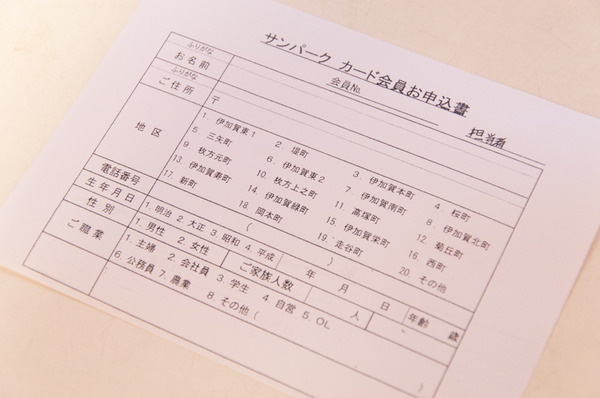 サンパーク カード会員お申込書
会員No.
担当者
ふりがな
お名前
ふりがな
ご住所
〒
地区
1 伊加賀東1 2 堤町 3 伊加賀本町 4 桜町
5 三矢町 6 伊加賀東2 7 伊加賀南町 8 伊加賀北町
9 枚方元町 10 枚方上之町 11 高塚町 12 菊丘町
13 伊加賀寿町 14 伊加賀緑町 15 伊加賀栄町 16 西町
17 新町 18 岡本町 19 走谷町 20. その他
電話番号 ( )
生年月日 1. 明治 2. 大正 3. 昭和 4. 平成 年 月 日 年齢 歳
性別 1. 男性 2. 女性 ご家族人数 人
ご職業 1. 主婦 2. 会社員 3. 学生 4. 自営 5. OL
6. 公務員 7. 農業 8 その他 ( )